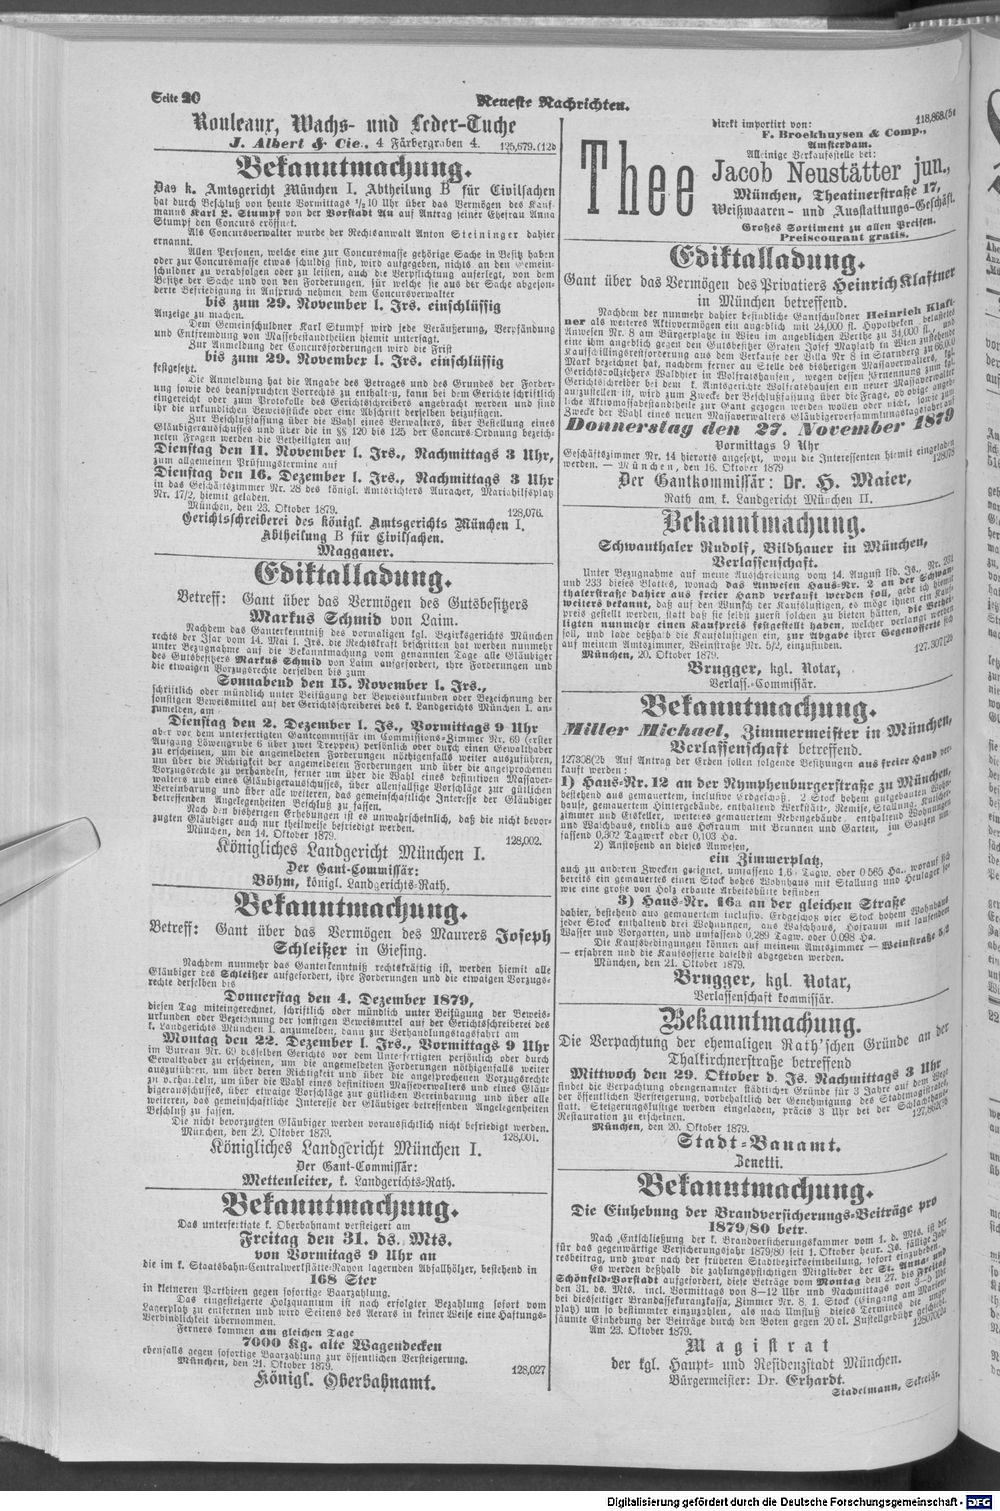 Seite 20
Neueste Nachrichten.
Rouleaux, Wachs- und Leder-Tuche
J. Albert & Cie., 4 Färbergraben 4. 125,679.(12b
Bekanntmachung.
Das k. Amtsgericht München I. Abtheilung B für Civilsachen
hat durch Beschluß von heute Vormittags ½10 Uhr über das Vermögen des Kauf-
manns Karl L. Stumpf von der Vorstadt Au auf Antrag seiner Ehefrau Anna
Stumpf den Concurs eröffnet.
Als Concursverwalter wurde der Rechtsanwalt Anton Steininger dahier
ernannt.
Allen Personen, welche eine zur Concursmasse gehörige Sache in Besitz haben
oder zur Concursmasse etwas schuldig sind, wird aufgegeben, nichts an den Gemein-
schuldner zu verabfolgen oder zu leisten, auch die Verpflichtung auferlegt, von dem
Besitze der Sache und von den Forderungen, für welche sie aus der Sache abgeson-
derte Befriedigung in Anspruch nehmen dem Concursverwalter
bis zum 29. November l. Irs. einschlüssig
Anzeige zu machen.
Dem Gemeinschuldner Karl Stumpf wird jede Veräußerung, Verpfändung
und Entfremdung von Massebestandtheilen hiemit untersagt.
Zur Anmeldung der Concursforderungen wird die Frist
bis zum 29. November l. Irs. einschlüssig
festgesetzt.
Die Anmeldung hat die Angabe des Betrages und des Grundes der Forder-
ung sowie des beanspruchten Vorrechts zu enthalten, kann bei dem Gericht schriftlich
eingereicht oder zum Protokolle des Gerichtsschreibers angebracht werden und sind
ihr die urkundlichen Beweisstücke oder eine Abschrift derselben beizufügen.
Zur Beschlußfassung über die Wahl eines Verwalters, über Bestellung eines
Gläubigerausschusses und über die in §§ 120 bis 125 der Concurs-Ordnung bezeich-
neten Fragen werden die Betheiligten auf
Dienstag den 11. November l. Irs., Nachmittags 3 Uhr,
zum allgemeinen Prüfungstermine auf
Dienstag den 16. Dezember l. Irs., Nachmittags 3 Uhr
in das Geschäftszimmer Nr. 28 des königl. Amtsrichters Auracher, Mariahilfsplatz
Nr. 17/2, hiemit geladen.
München, den 23. Oktober 1879. 128,076.
Gerichtsschreiberei des königl. Amtsgerichts München I.
Abtheilung B für Civilsachen.
Maggauer.
Ediktalladung.
Betreff: Gant über das Vermögen des Gutsbesitzers
Markus Schmid von Laim.
Nachdem das Ganterkenntniß des vormaligen kgl. Bezirksgerichts München
rechts der Isar vom 14. Mai l. Irs. die Rechtskraft beschritten hat werden nunmehr
unter Bezugnahme auf die Bekanntmachung vom genannten Tage alle Gläubiger
des Gutsbesitzers Markus Schmid von Laim aufgefordert, ihre Forderungen und
die etwaigen Vorzugsrechte derselben bis zum
Sonnabend den 15. November l. Irs.,
schriftlich oder mündlich unter Beifügung der Beweisurkunden oder Bezeichnung der
sonstigen Beweismittel auf der Gerichtsschreiberei des k. Landgerichts München I. an-
zumelden, am
Dienstag den 2. Dezember l. Js., Vormittags 9 Uhr
aber vor dem unterfertigten Gantkommissär im Commissions-Zimmer Nr. 69 (erster
Ausgang Löwengrube 6 über zwei Treppen) persönlich oder durch einen Gewalthaber
zu erscheinen, um die angemeldeten Forderungen nöthigenfalls weiter auszuführen,
um über die Richtigkeit der angemeldeten Forderungen und über die angesprochenen
Vorzugsrechte zu verhandeln, ferner um über die Wahl eines definitiven Massaver-
walters und eines Gläubigerausschusses, über allenfallsige Vorschläge zur gütlichen
Vereinbarung und über alle weiteren, das gemeinschaftliche Interesse der Gläubiger
betreffenden Angelegenheiten Beschluß zu fassen.
Nach den bisherigen Erhebungen ist es unwahrscheinlich, daß die nicht bevor-
zugten Gläubiger auch nur theilweise befriedigt werden.
München, den 14. Oktober 1879. 128,002.
Königliches Landgericht München I.
Der Gant-Commissär:
Böhm, königl. Landgerichts-Rath.
Bekanntmachung.
Betreff: Gant über das Vermögen des Maurers Joseph
Schleißer in Giesing.
Nachdem nunmehr das Ganterkenntniß rechtskräftig ist, werden hiemit alle
Gläubiger des Schleißer aufgefordert, ihre Forderungen und die etwaigen Vorzugs-
rechte derselben bis
Donnerstag den 4. Dezember 1879,
diesen Tag miteingerechnet, schriftlich oder mündlich unter Beifügung der Beweis-
urkunden oder Bezeichnung der sonstigen Beweismittel auf der Gerichtsschreiberei des
k. Landgerichts München I. anzumelden, dann zur Verhandlungstagsfahrt am
Montag den 22. Dezember l. Irs., Vormittags 9 Uhr
im Bureau Nr. 69 desselben Gerichts vor dem Unterfertigten persönlich oder durch
Gewalthaber zu erscheinen, um die angemeldeten Forderungen nöthigenfalls weiter
auszuführen, um über deren Richtigkeit und über die angesprochenen Vorzugsrechte
zu verhandeln, um über die Wahl eines definitiven Masseverwalters und eines Gläu-
bigerausschusses, über etwaige Vorschläge zur gütlichen Vereinbarung und über alle
weiteren, das gemeinschaftliche Interesse der Gläubiger betreffenden Angelegenheiten
Beschluß zu fassen.
Die nicht bevorzugten Gläubiger werden voraussichtlich nicht befriedigt werden.
München, den 20. Oktober 1879. 128,001.
Königliches Landgericht München I.
Der Gant-Commissär:
Mettenleiter, k. Landgerichts-Rath.
Bekanntmachung.
Das unterfertigte k. Oberbahnamt versteigert am
Freitag den 31. ds. Mts.
von Vormittags 9 Uhr an
die im k. Staatsbahn-Centralwerkstätte-Rayon lagernden Abfallhölzer, bestehend in
168 Ster
in kleineren Parthieen gegen sofortige Baarzahlung.
Das eingesteigerte Holzquantum ist nach erfolgter Bezahlung sofort vom
Lagerplatz zu entfernen und wird Seitens des Aerars in keiner Weise eine Haftungs-
Verbindlichkeit übernommen.
Ferners kommen am gleichen Tage
7000 Kg. alte Wagendecken
ebenfalls gegen sofortige Baarzahlung zur öffentlichen Versteigerung.
München, den 21. Oktober 1879. 128,027
Königl. Oberbahnamt.
118,868.(5
Thee
direkt importirt von:
F. Broekhuysen & Comp.,
Amsterdam.
Alleinige Verkaufsstelle bei:
Jacob Neustätter jun.,
München, Theatinerstraße 17,
Weißwaaren- und Ausstattungs-Geschäft.
Großes Sortiment zu allen Preisen.
Preiscourant gratis.
Ediktalladung.
Gant über das Vermögen des Privatiers Heinrich Klaftner
in München betreffend.
Nachdem der nunmehr dahier befindliche Gantschuldner Heinrich Klaft-
ner als weiteres Aktivvermögen ein angeblich mit 24,000 fl. Hypotheken belastetes
Anwesen Nr. 8 am Bürgerplatze in Wien im angeblichen Werthe zu 34,000 fl., und
eine ihm angeblich gegen den Gutsbesitzer Grafen Josef Maylath in Wien zustehende
Kaufschillingsrestforderung aus dem Verkaufe der Villa Nr. 8 in Starnberg zu 66,000
Mark bezeichnet hat, nachdem ferner an Stelle des bisherigen Massaverwalters, kgl.
Gerichtsvollziehers Waldherr in Wolfratshausen, wegen dessen Ernennung zum kgl.
Gerichtsschreiber bei dem k. Amtsgerichte Wolfratshausen ein neuer Massaverwalter
aufzustellen ist, wird zum Zwecke der Beschlußfassung über die Frage, ob obige angeb-
liche Aktivmassabestandtheile zur Gant gezogen werden wollen oder nicht, sowie zum
Zwecke der Wahl eines neuen Massaverwalters Gläubigerversammlungstagsfahrt auf
Donnerstag den 27. November 1879
Vormittags 9 Uhr
Geschäftszimmer Nr. 14 hierorts angesetzt, wozu die Interessenten hiemit eingeladen
werden. — München, den 16. Oktober 1879 128,078
Der Gantkommissär: Dr. H. Maier,
Rath am k. Landgericht München II.
Bekanntmachung.
Schwanthaler Rudolf, Bildhauer in München,
Verlassenschaft.
Unter Bezugnahme auf meine Ausschreibung vom 14. August lfd. Js., Nr. 231
und 233 dieses Blattes, wonach das Anwesen Haus-Nr. 2 an der Schwan-
thalerstraße dahier aus freier Hand verkauft werden soll, gebe ich hiemit
weiters bekannt, daß auf den Wunsch der Kaufslustigen, es möge ihnen ein Kauf-
preis gestellt werden, statt daß sie selbst zuerst solchen zu bieten hätten, die Bethei-
ligten nunmehr einen Kaufpreis festgestellt haben, welcher verlangt werden
soll, und lade deßhalb die Kaufslustigen ein, zur Abgabe ihrer Gegenofferte sich
auf meinem Amtszimmer, Weinstraße Nr. 5/2, einzufinden.
München, 20. Oktober 1879. 127,307(2
Brugger, kgl. Notar,
Verlass.-Commissär.
Bekanntmachung.
Miller Michael, Zimmermeister in München,
Verlassenschaft betreffend.
127308(2b Auf Antrag der Erben sollen folgende Besitzungen aus freier Hand ver-
kauft werden:
1) Haus-Nr. 12 an der Nymphenburgerstraße zu München,
bestehend aus gemauertem, inclusive Erdgeschoß, 2 Stock hohem gutgebauten Wohn-
hause, gemauertem Hintergebäude, enthaltend Werkstätte, Remise, Stallung, Kutscher-
zimmer und Eiskeller, weiteres gemauertem Nebengebäude, enthaltend Wohnungen
und Waschhaus, endlich aus Hofraum mit Brunnen und Garten, im Ganzen um-
fassend 0,302 Tagwerk oder 0,103 Ha.
2) Anstoßend an dieses Anwesen,
ein Zimmerplatz,
auch zu anderen Zwecken geeignet, umfassend 1,6 Tagw. oder 0 565 Ha., worauf sich
bereits ein gemauertes einen Stock hohes Wohnhaus mit Stallung und Heulager so-
wie eine große von Holz erbaute Arbeitshütte befinden
3) Haus-Nr. 16a an der gleichen Straße
dahier, bestehend aus gemauertem inclusiv. Erdgeschoß vier Stock hohem Wohnhaus
jeder Stock enthaltend drei Wohnungen, aus Waschhaus, Hofraum mit laufendem
Wasser und Vorgarten, und umfassend 0,289 Tagw. oder 0,098 Ha.
Die Kaufsbedingungen können auf meinem Amtszimmer — Weinstraße 5/2
— erfahren und die Kaufsofferte daselbst abgegeben werden.
München, den 21. Oktober 1879.
Brugger, kgl. Notar,
Verlassenschaft kommissär.
Bekanntmachung.
Die Verpachtung der ehemaligen Rath'schen Gründe an der
Thalkirchnerstraße betreffend
Mittwoch den 29. Oktober d. Js. Nachmittags 3 Uhr
findet die Verpachtung obengenannter städtischer Gründe für 3 Jahre auf dem Wege
der öffentlichen Versteigerung, vorbehaltlich der Genehmigung des Stadtmagistrates,
statt. Steigerungslustige werden eingeladen, präcis 3 Uhr bei der Schlachthaus-
Restauration zu erscheinen.
München, den 20. Oktober 1879.
Stadt-Bauamt.
Zenetti.
Bekanntmachung.
Die Einhebung der Brandversicherungs-Beiträge pro
1879/80 betr.
Nach Entschließung der k. Brandversicherungskammer vom 1. d. Mts. ist der
für das gegenwärtige Versicherungsjahr 1879/80 seit 1. Oktober heur. Js. fällige Jah-
resbeitrag, und zwar nach der früheren Stadtbezirkseintheilung, sofort einzuheben.
Es werden deßhalb die zahlungspflichtigen Mitglieder der St. Anna- und
Schönfeld-Vorstadt aufgefordert, diese Beträge vom Montag den 27. bis Freitag
den 31. ds. Mts. incl. Vormittags von 8—12 Uhr und Nachmittags von 3—5 Uhr
bei diesseitiger Brandassekuranzkassa, Zimmer Nr. 8 1. Stock (Eingang am Marien-
platz) um so bestimmter einzuzahlen, als nach Umfluß dieses Termines die unge-
säumte Einhebung der Beiträge durch den Boten gegen 20 ₰. Zustellgebühr geschieht.
Am 23. Oktober 1879.
Magistrat
der kgl. Haupt- und Residenzstadt München.
Bürgermeister: Dr. Erhardt.
Stadelmann, Sekretär.
Digitalisierung gefördert durch die Deutsche Forschungsgemeinschaft - DFG